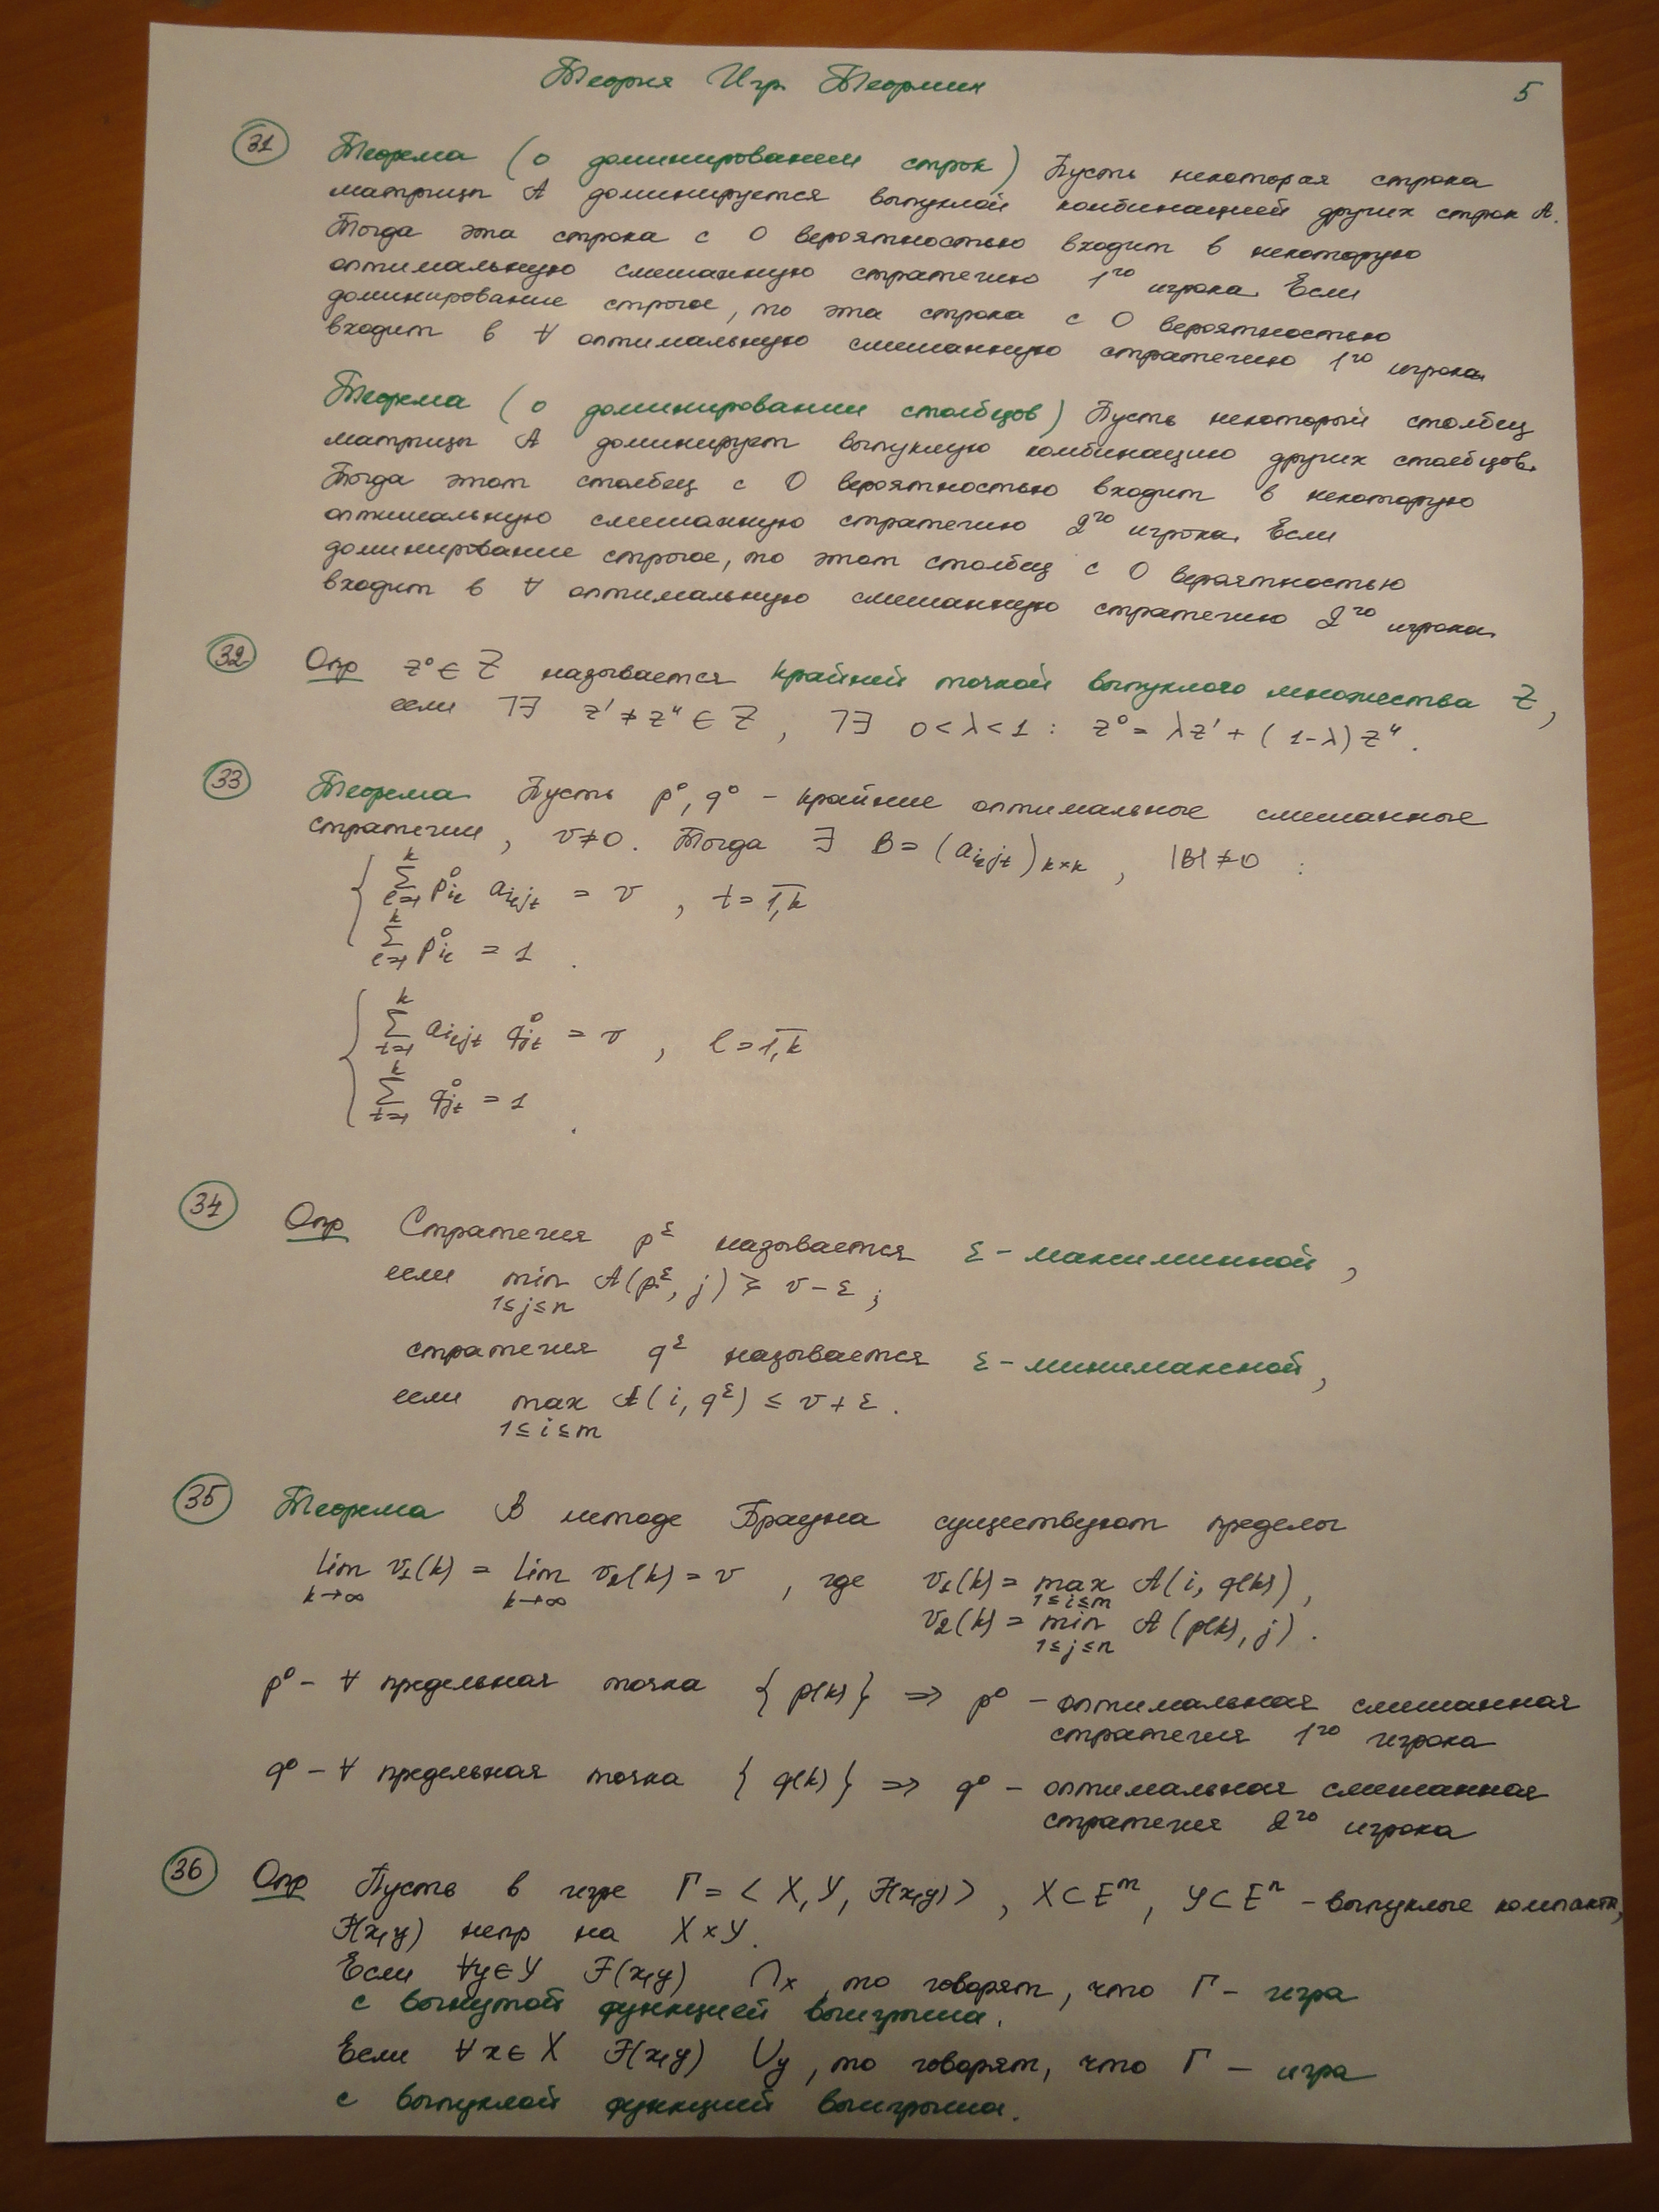 Теория Игр Теормин
5
31 Теорема (о доминировании строк) Пусть некоторая строка
матрицы A доминируется выпуклой комбинацией других строк A.
Тогда эта строка с 0 вероятностью входит в некоторую
оптимальную смешанную стратегию 1го игрока. Если
доминирование строгое, то эта строка с 0 вероятностью
входит в ∀ оптимальную смешанную стратегию 1го игрока.
Теорема (о доминировании столбцов) Пусть некоторый столбец
матрицы A доминирует выпуклую комбинацию других столбцов.
Тогда этот столбец с 0 вероятностью входит в некоторую
оптимальную смешанную стратегию 2го игрока. Если
доминирование строгое, то этот столбец с 0 вероятностью
входит в ∀ оптимальную смешанную стратегию 2го игрока.
32 Опр z⁰ ∈ Z называется крайней точкой выпуклого множества Z,
если ⅂∃ z' ≠ z'' ∈ Z, ⅂∃ 0 < λ < 1 : z⁰ = λz' + (1-λ)z''.
33 Теорема. Пусть p⁰, q⁰ – крайние оптимальные смешанные
стратегии, v ≠ 0. Тогда ∃ B = (a_{i_l j_t})_{k×k}, |B| ≠ 0 :
{ ∑_{l=1}^{k} p⁰_{i_l} a_{i_l j_t} = v, t = \overline{1,k}
∑_{l=1}^{k} p⁰_{i_l} = 1.
{ ∑_{t=1}^{k} a_{i_l j_t} q⁰_{j_t} = v, l = \overline{1,k}
∑_{t=1}^{k} q⁰_{j_t} = 1.
34 Опр Стратегия p^ε называется ε – максиминной,
если min A(p^ε, j) ≥ v – ε;
1≤j≤n
стратегия q^ε называется ε – минимаксной,
если max A(i, q^ε) ≤ v + ε.
1≤i≤m
35 Теорема В методе Брауна существуют пределы
lim v₁(k) = lim v₂(k) = v, где v₁(k) = max A(i, q(k)),
k→∞ k→∞ 1≤i≤m
v₂(k) = min A(p(k), j).
1≤j≤n
p⁰ – ∀ предельная точка {p(k)} ⇒ p⁰ – оптимальная смешанная
стратегия 1го игрока
q⁰ – ∀ предельная точка {q(k)} ⇒ q⁰ – оптимальная смешанная
стратегия 2го игрока
36 Опр Пусть в игре Γ = < X, Y, F(x,y) >, X ⊂ E^m, Y ⊂ E^n – выпуклые компакты,
F(x,y) непр на X × Y.
Если ∀y ∈ Y F(x,y) ∩x, то говорят, что Γ – игра
с вогнутой функцией выигрыша.
Если ∀x ∈ X F(x,y) ∪y, то говорят, что Γ – игра
с выпуклой функцией выигрыша.